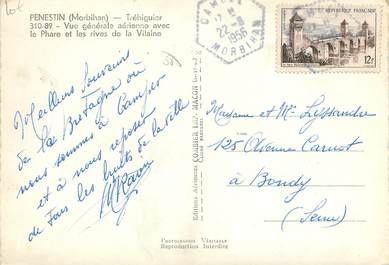 lot
PENESTIN (Morbihan) — Tréhiguier
310-89 - Vue générale aérienne avec
le Phare et les rives de la Vilaine
Meilleurs souvenirs
de la Bretagne où
nous sommes à camper
et à nous reposer
de tous les bruits de la ville
22-8
1956
MORBIHAN
REPUBLIQUE FRANÇAISE
12F
Editions Aériennes COMBIER IMP. MACON
Madame et Mr
125 Avenue Carnot
à Bondy
(Seine)
PHOTOGRAPHIE VÉRITABLE
Reproduction Interdite